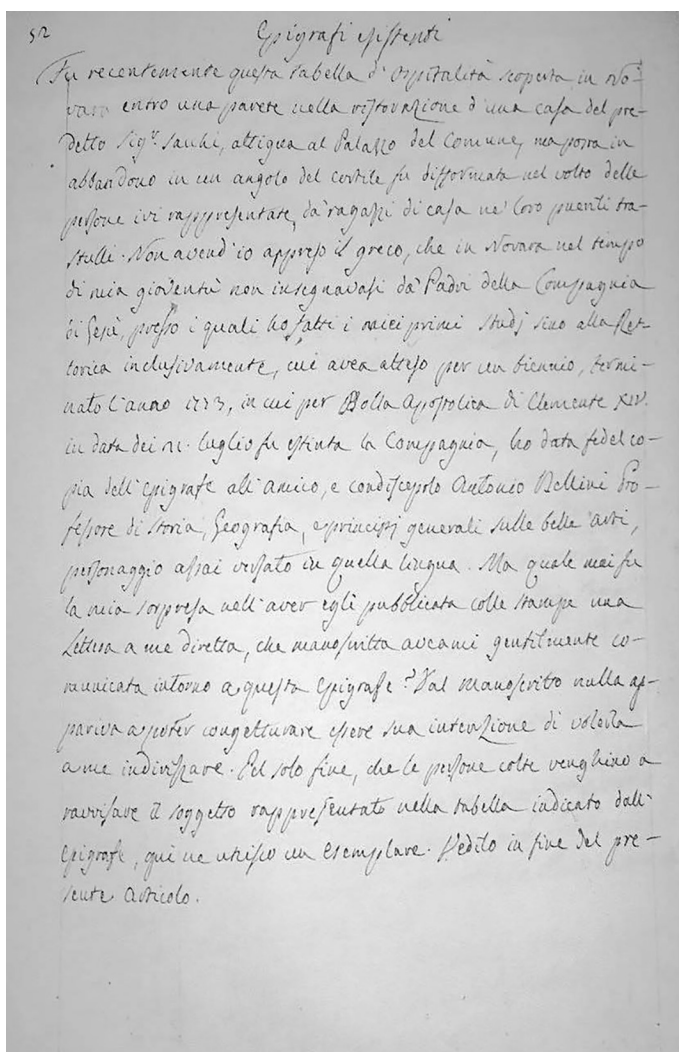 52
Epigrafi esistenti
Fu recentemente questa tabella d'Ospitalità scoperta in No-
vara entro una parete nella ristorazione d'una casa del pre-
detto Sig.r Sacchi, attigua al Palazzo del Comune, ma posta in
abbandono in un angolo del cortile fu difformata nel volto delle
persone ivi rappresentate, da' ragazzi di casa ne' loro puerili tra-
stulli. Non avend'io appreso il greco, che in Novara nel tempo
di mia gioventù non insegnavasi da' Padri della Compagnia
di Gesù, presso i quali ho fatti i miei primi studj sino alla Ret-
torica inclusivamente, cui avea atteso per un biennio, termi-
nato l'anno 1773, in cui per Bolla Apostolica di Clemente XIV.
in data dei 21. luglio fu estinta la Compagnia, ho data fedel co-
pia dell'epigrafe all'amico, e condiscepolo Antonio Bellini Pro-
fessore di Storia, Geografia, e principj generali sulle belle arti,
personaggio assai versato in quella lingua. Ma quale mai fu
la mia sorpresa nell'aver egli pubblicata colle stampe una
Lettera a me diretta, che manoscritta aveami gentilmente co-
municata intorno a questa epigrafe? Dal manoscritto nulla ap-
pariva a poter congetturare essere sua intenzione di volerla
a me indirizzare. Pel solo fine, che le persone colte venghino a
ravvisare il soggetto rappresentato nella tabella indicato dall'
epigrafe, qui ne unisco un esemplare. Vedilo in fine del pre-
sente articolo.